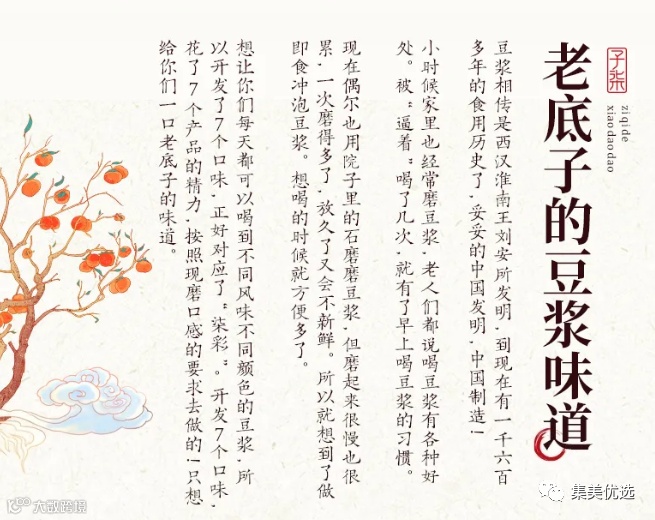 老底子的豆浆味道
子柒
zi qi de
xiao dao dao
豆浆相传是西汉淮南王刘安所发明,到现在有一千六百
多年的食用历史了,妥妥的中国发明,中国制造!
小时候家里也经常磨豆浆,老人们都说喝豆浆有各种好
处。被“逼着”喝了几次,就有了早上喝豆浆的习惯。
现在偶尔也用院子里的石磨磨豆浆,但磨起来很慢也很
累,一次磨得多了,放久了又会不新鲜。所以就想到了做
即食冲泡豆浆。想喝的时候就方便多了。
想让你们每天都可以喝到不同风味不同颜色的豆浆,所
以开发了7个口味,正好对应了“柒彩”。开发7个口味,
花了7个产品的精力,按照现磨口感的要求去做的!只想
给你们一口老底子的味道。
大数跨境
集美优选